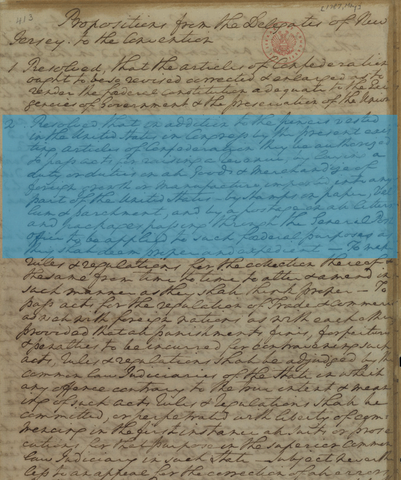 413
Propositions from the Delegates of New
Jersey to the Convention
1. Resolved, that the articles of Confederation
ought to be so revised corrected & enlarged as to
render the federal constitution adequate to the Exi
gencies of Government & the preservation of the Union
2. Resolved that in addition to the powers vested
in the United States in Congress by the present exis
ting articles of Confederation they be authorized
to pass acts for raising a revenue by levying a
duty or duties on all Goods & Merchandizes of
foreign growth or manufacture imported into any
part of the United States by Stamps on paper, Vel
lum & parchment, and by a postage on all letters
and packages passing through the General Post
Office to be applied to such federal purposes as
they shall deem proper and expedient - To make
rules & regulations for the collection thereof
the same from time to time to alter & amend in
such manner as they shall think proper - To
pass acts for the regulation of Trade & commerce
as well with foreign nations as with each other
provided that all punishments, fines, forfeitures
& penalties to be incurred for contravening such
acts rules & regulations shall be adjudged by the
common law Judiciaries of the State in which
any offence contrary to the true intent & mean
ing of such acts rules & regulations shall be
committed or perpetrated with liberty of com
mencing in the first instance all suits or prose
cutions for that purpose in the superior Common
law Judiciary in such State subject never the
less to an appeal for the correction of all errors